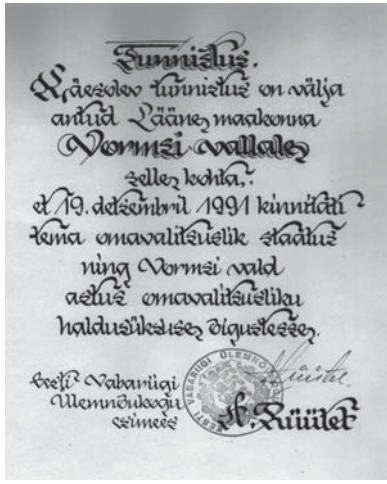 Tunnistus.
Käesolev tunnistus on välja
antud Lääne maakonna
Vormsi vallale
selle kohta,
et 19. detsembril 1991 kinnitati
tema omavalitsuslik staatus
ning Vormsi vald
astus omavalitsusliku
haldusüksuse õigustesse.
Eesti Vabariigi
Ülemnõukogu
esimees
A. Rüütel
EESTI VABARIIGI ÜLEMNÕUKOGU